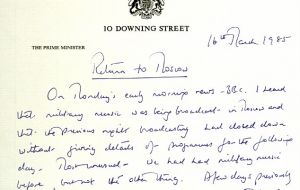 10 DOWNING STREET
THE PRIME MINISTER
16th March 1985
Return to Moscow
On Monday's early morning news - BBC. I heard
that military music was being broadcast in Moscow and
that the previous night broadcasting had closed down
without giving details of programmes for the following
day. Most unusual - we had had military music
before, but not the other thing. A few days previously